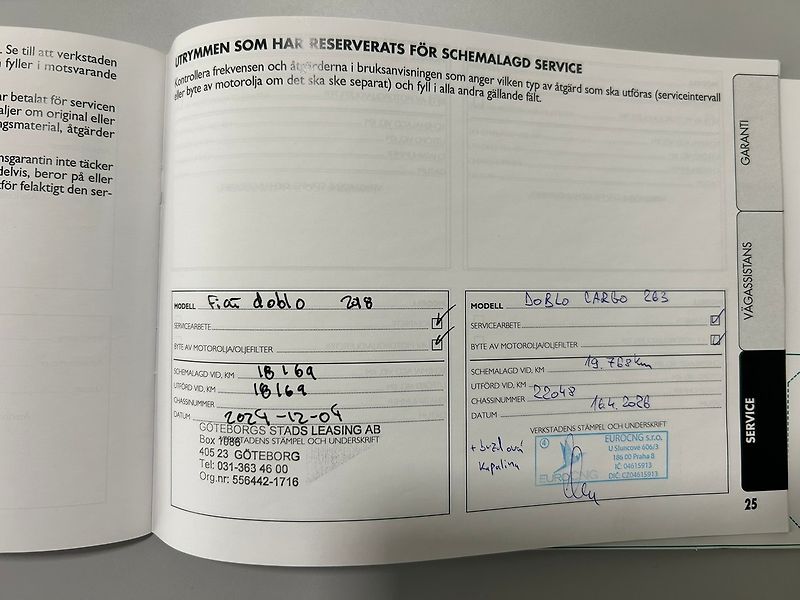 . Se till att verkstaden
fyller i motsvarande
ar betalat för servicen
aljer om original eller
gsmaterial, åtgärder
nsgarantin inte täcker
delvis, beror på eller
för felaktigt den ser-
UTRYMMEN SOM HAR RESERVERATS FÖR SCHEMALAGD SERVICE
Kontrollera frekvensen och åtgärderna i bruksanvisningen som anger vilken typ av åtgärd som ska utföras (serviceintervall
eller byte av motorolja om det ska ske separat) och fyll i alla andra gällande fält.
MODELL Fiat doblo
SERVICEARBETE
BYTE AV MOTOROLJA/OLJEFILTER
SCHEMALAGD VID, KM 18169
UTFÖRD VID, KM 18169
CHASSINUMMER
DATUM 2024-12-04
GÖTEBORGS STADS LEASING AB
VERKSTADENS STÄMPEL OCH UNDERSKRIFT
Box 1086
405 23 GÖTEBORG
Tel: 031-363 46 00
Org.nr: 556442-1716
MODELL DOBLO CARGO 263
SERVICEARBETE
BYTE AV MOTOROLJA/OLJEFILTER
SCHEMALAGD VID, KM 19.768km
UTFÖRD VID, KM 22048
CHASSINUMMER
DATUM 16.4.2026
VERKSTADENS STÄMPEL OCH UNDERSKRIFT
+ brzdová
kapalina
4
EUROCNG
EUROCNG s.r.o.
U Sluncové 606/3
186 00 Praha 8
IČ: 04615913
DIČ: CZ04615913
GARANTI
VÄGASSISTANS
SERVICE
25